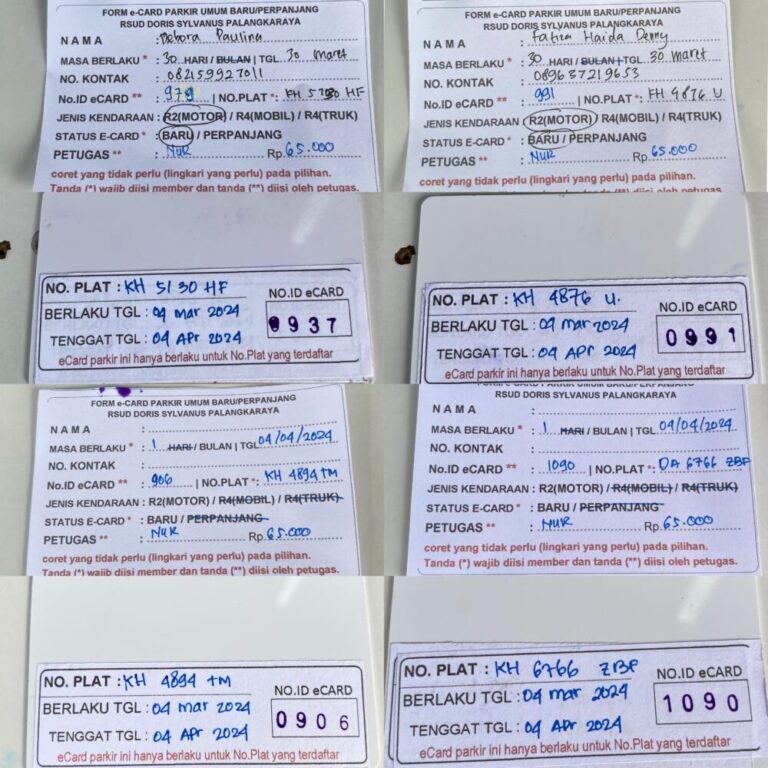 FORM e-CARD PARKIR UMUM BARU/PERPANJANG
RSUD DORIS SYLVANUS PALANGKARAYA
NAMA : Debora Paulina
MASA BERLAKU * : 30 HARI / BULAN | TGL 30 maret
NO. KONTAK : 082159927011
No.ID eCARD ** : 979 | NO.PLAT *: KH 5130 HF
JENIS KENDARAAN : R2(MOTOR) / R4(MOBIL) / R4(TRUK)
STATUS E-CARD * : BARU / PERPANJANG
PETUGAS ** : NUR Rp. 65.000
coret yang tidak perlu (lingkari yang perlu) pada pilihan.
Tanda (*) wajib diisi member dan tanda (**) diisi oleh petugas.
FORM e-CARD PARKIR UMUM BARU/PERPANJANG
RSUD DORIS SYLVANUS PALANGKARAYA
NAMA : Haida Denny
MASA BERLAKU * : 30 HARI / BULAN | TGL 30 maret
NO. KONTAK : 089637219653
No.ID eCARD ** : 991 | NO.PLAT *: KH 4876 U
JENIS KENDARAAN : R2(MOTOR) / R4(MOBIL) / R4(TRUK)
STATUS E-CARD * : BARU / PERPANJANG
PETUGAS ** : NUR Rp. 65.000
coret yang tidak perlu (lingkari yang perlu) pada pilihan.
Tanda (*) wajib diisi member dan tanda (**) diisi oleh petugas.
NO. PLAT : KH 5130 HF
NO.ID eCARD
BERLAKU TGL : 04 mar 2024
0937
TENGGAT TGL : 04 APR 2024
eCard parkir ini hanya berlaku untuk No.Plat yang terdaftar
NO. PLAT : KH 4876 U.
NO.ID eCARD
BERLAKU TGL : 04 mar 2024
0991
TENGGAT TGL : 04 APR 2024
eCard parkir ini hanya berlaku untuk No.Plat yang terdaftar
FORM e-CARD PARKIR UMUM BARU/PERPANJANG
RSUD DORIS SYLVANUS PALANGKARAYA
NAMA :
MASA BERLAKU * : 1 HARI / BULAN | TGL 04/04/2024
NO. KONTAK :
No.ID eCARD ** : 906 | NO.PLAT *: KH 4894 TM
JENIS KENDARAAN : R2(MOTOR) / R4(MOBIL) / R4(TRUK)
STATUS E-CARD * : BARU / PERPANJANG
PETUGAS ** : NUR Rp. 65.000
coret yang tidak perlu (lingkari yang perlu) pada pilihan.
Tanda (*) wajib diisi member dan tanda (**) diisi oleh petugas.
FORM e-CARD PARKIR UMUM BARU/PERPANJANG
RSUD DORIS SYLVANUS PALANGKARAYA
NAMA :
MASA BERLAKU * : 1 HARI / BULAN | TGL 04/04/2024
NO. KONTAK :
No.ID eCARD ** : 1090 | NO.PLAT *: DA 6766 ZBF
JENIS KENDARAAN : R2(MOTOR) / R4(MOBIL) / R4(TRUK)
STATUS E-CARD * : BARU / PERPANJANG
PETUGAS ** : NUR Rp. 65.000
coret yang tidak perlu (lingkari yang perlu) pada pilihan.
Tanda (*) wajib diisi member dan tanda (**) diisi oleh petugas.
NO. PLAT : KH 4894 TM
NO.ID eCARD
BERLAKU TGL : 04 mar 2024
0906
TENGGAT TGL : 04 Apr 2024
eCard parkir ini hanya berlaku untuk No.Plat yang terdaftar
NO. PLAT : KH 6766 ZBF
NO.ID eCARD
BERLAKU TGL : 04 mar 2024
1090
TENGGAT TGL : 04 Apr 2024
eCard parkir ini hanya berlaku untuk No.Plat yang terdaftar